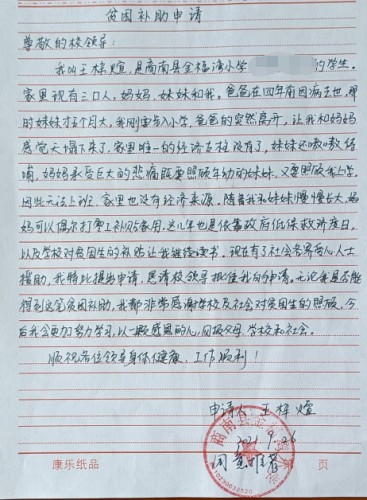 贫困补助申请
尊敬的校领导:
我叫王梓煊,是商南县金福湾小学 的学生。
家里现有三口人,妈妈,妹妹和我。爸爸在四年前因病去世,那
时妹妹才五个月大,我刚要步入小学,爸爸的突然离开,让我和妈妈
感觉天塌下来了,家里唯一的经济支柱没有了,妹妹还嗷嗷待
哺,妈妈承受巨大的悲痛既要照顾年幼的妹妹,又要照顾我上学,
因此无法上班,家里也没有经济来源。随着我和妹妹慢慢长大,妈
妈可以偶尔打零工补贴家用,这几年也是依靠政府低保救济度日,
以及学校对贫困生的补贴让我继续读书。现在有了社会各界爱心人士
援助,我特此提出申请,恳请校领导批准我的申请。无论我是否能
得到这笔贫困补助,我都非常感谢学校及社会对贫困生的照顾,今
后我会更加努力学习,以一颗感恩的心,回报父母,学校和社会。
顺祝各位领导身体健康,工作顺利!
申请人:王梓煊
2021.9.26
商南县金
康乐纸品
第 页